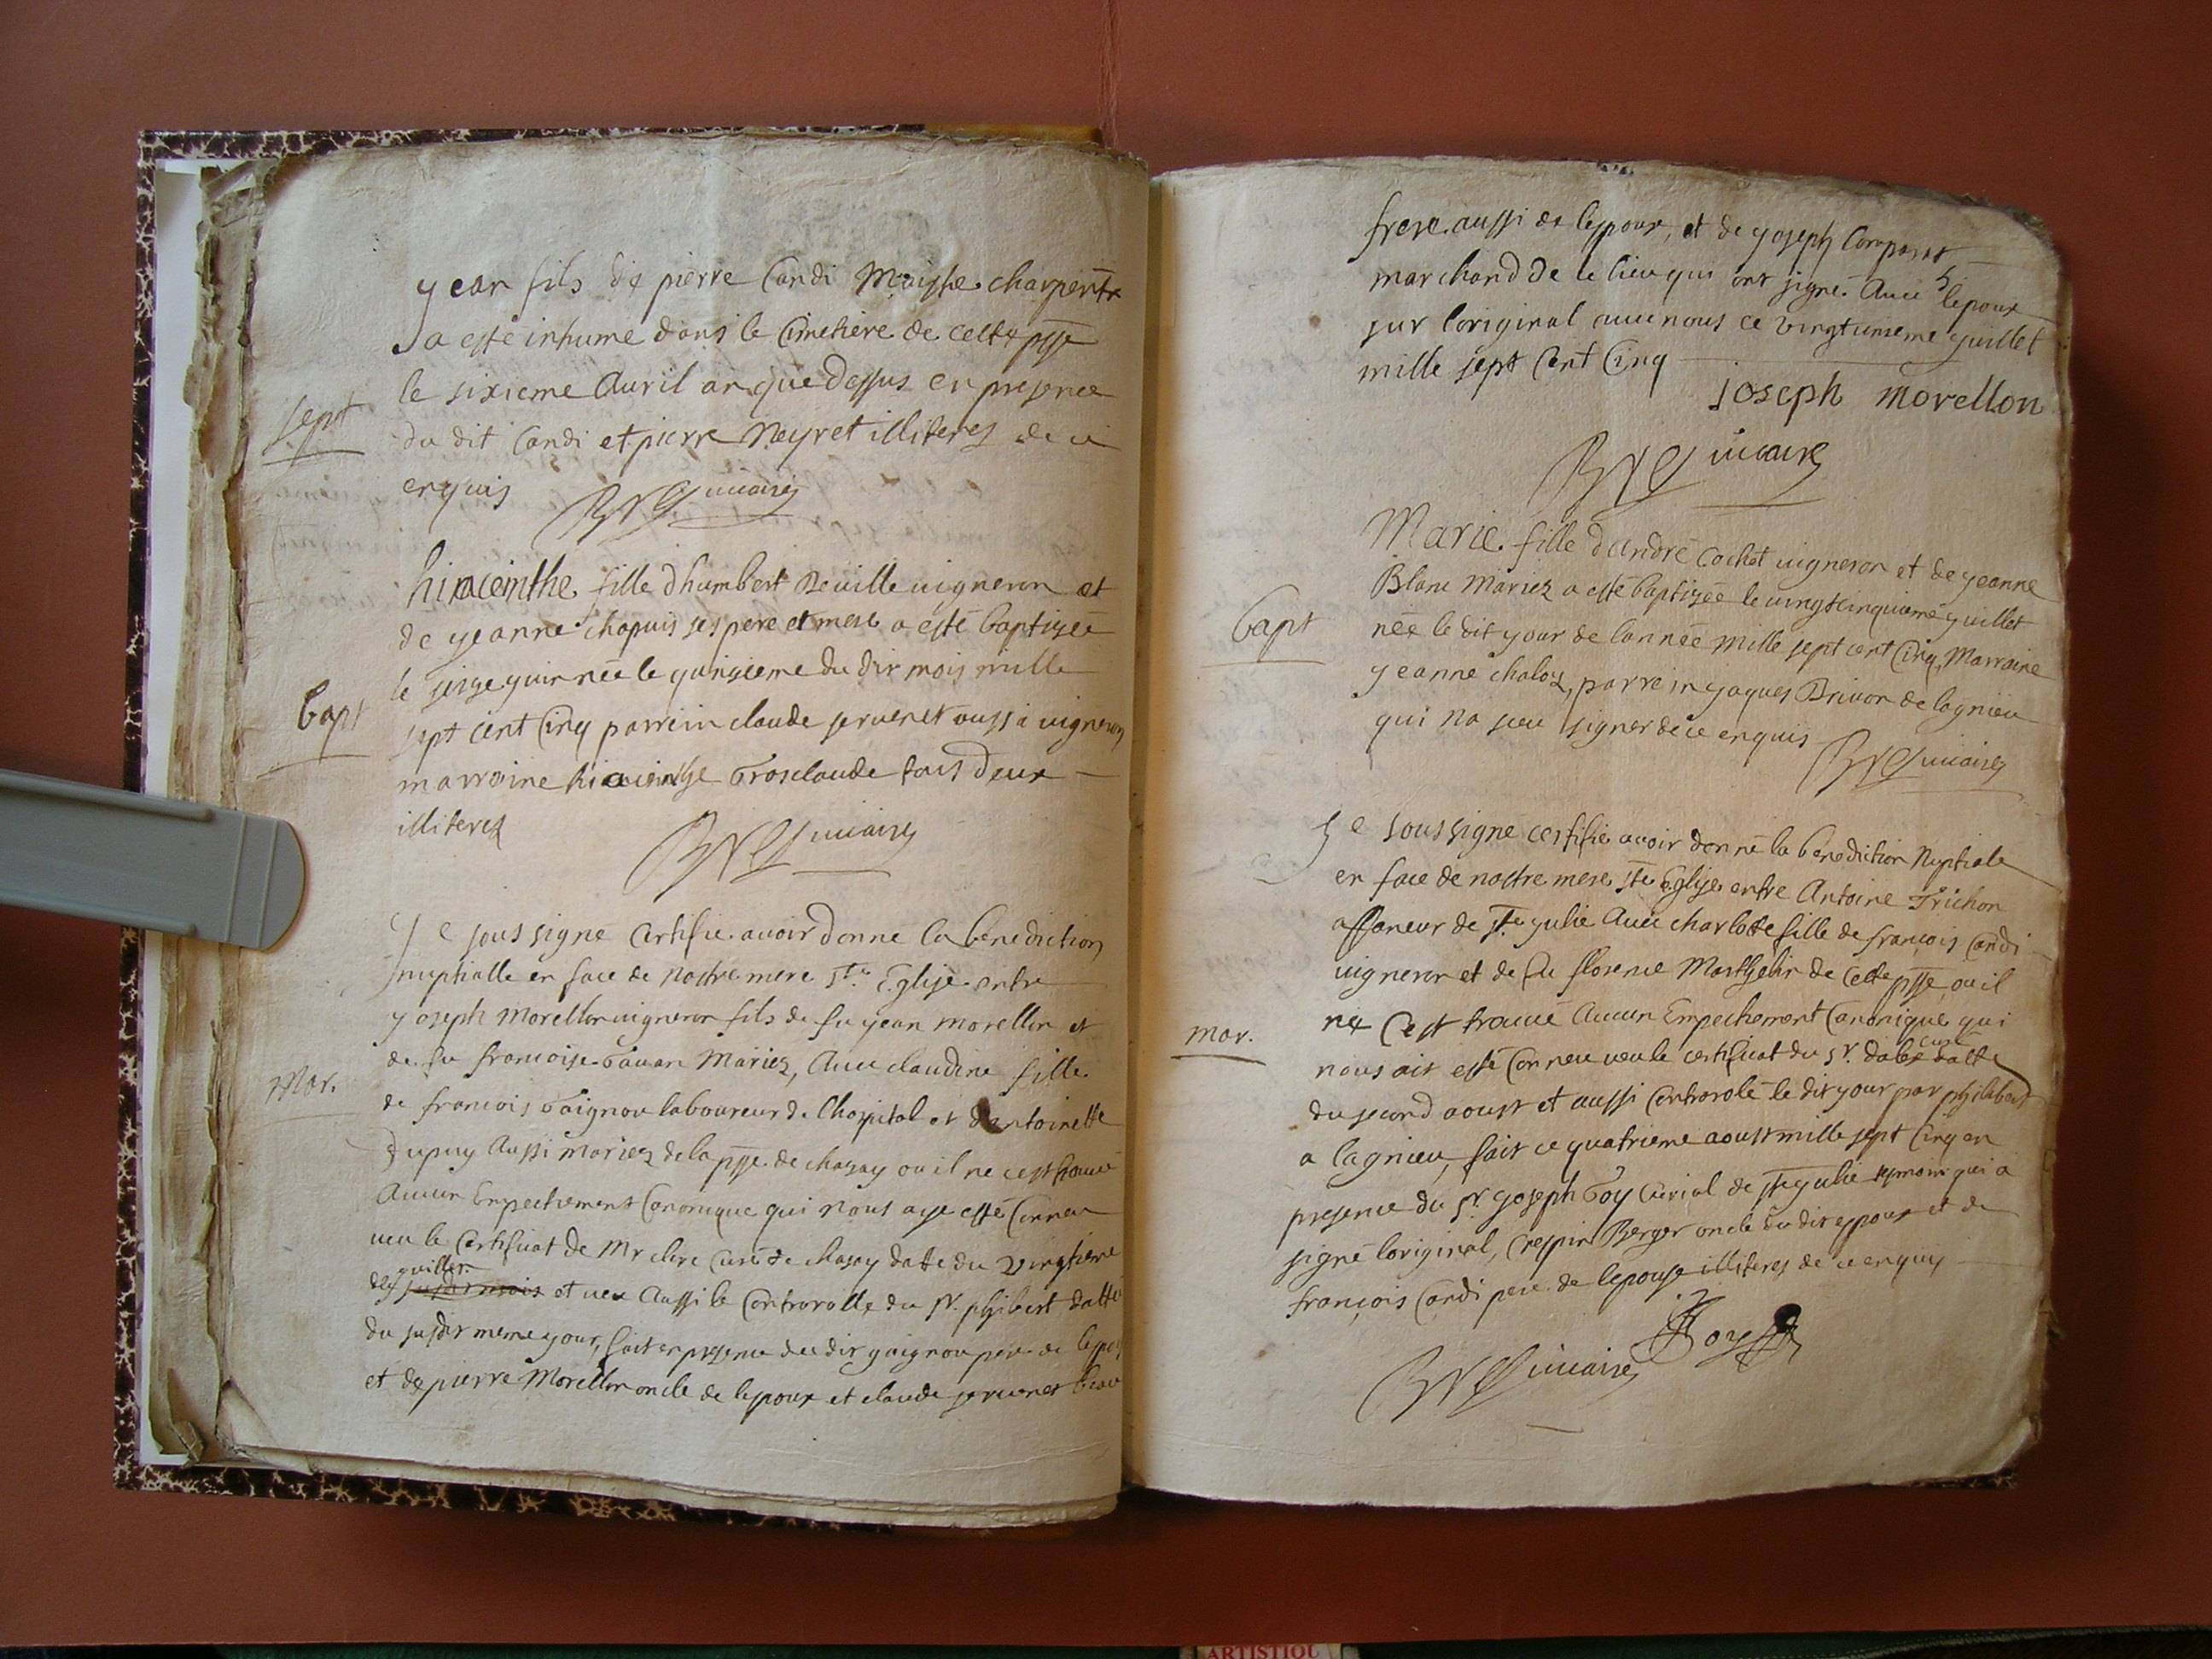 yean fils de pierre Candi Maistre charpentr
a esté inhume dans le Cimetiere de cette psse
sept
le sixieme Auril an que dessus en presence
du dit Candi et pierre Neyret illiteres de ce
enquis vicaire
hiaceinthe fille d humbert Reville vigneron et
de yeanne chapuis ses pere et mere a esté baptizée
le seize yuin née le quinzieme du dit mois mille
bapt
sept cent Cinq parrein claude servenet aussi vigneron
marraine hiaceinthe Grosclaude tous deux
illiterez vicaire
Je sous signé Certifie avoir donné la benediction
nuptialle en face de nostre mere Ste Eglise entre
yoseph Morellon vigneron fils de fu yean morellon et
de fu francoise Gavan Mariez, Avec claudine fille
Mar.
de francois Gaignou laboureur de lhospital et dantoinette
Dupuy Aussi mariez de la psse de chazay ou il ne cest trouvé
Aucun Empechement Canonique qui nous aye esté Conneu
veu le Certificat de Mr clerc Curé de chazay datte du vingtieme
yuillet
et veu Aussi le Controrolle du Sr. philbert datté
du susdit meme your, fait en presence du dit gaignou pere de lepouse
et de pierre Morellon oncle de lepoux et claude servenet beau
frere aussi de lepoux, et de yoseph Compant
marchand de ce lieu qui ont signé Avec lepoux
sur loriginal avec nous ce vingtunieme yuillet
mille sept Cent Cinq
joseph morellon
vicaire
Marie fille dandré Cochet vigneron et de yeanne
Blanc Mariez a esté baptizée le vingtcinquieme yuillet
bapt
née le dit your de lannée mille sept cent Cinq, Marraine
yeanne chaloz, parrein yaques Brivon de lagnieu
qui na sceu signer de ce enquis
vicaire
Je soussigné certifie avoir donné la benediction Nuptiale
en face de nostre mere Ste Eglise entre Antoine Trichon
affaneur de Ste yulie Avec charlotte fille de françois Candi
vigneron et de fu florence Marthelin de Cette psse, ou il
ne Cest trouvé Aucun Empechement Canonique qui
mar.
nous ait esté Conneu veu le certificat du Sr. curé datté
du second aoust et aussi Controrolé le dit your par philibert
a lagnieu, fait ce quatrieme aoust mille sept Cinq en
presence du Sr yoseph Goy Curial de Ste yulie temoin qui a
signé loriginal, Crespin Berger oncle du dit espoux et de
françois Candi pere de lepouse illiteres de ce enquis
Goy
vicaire
ARTISTIQU